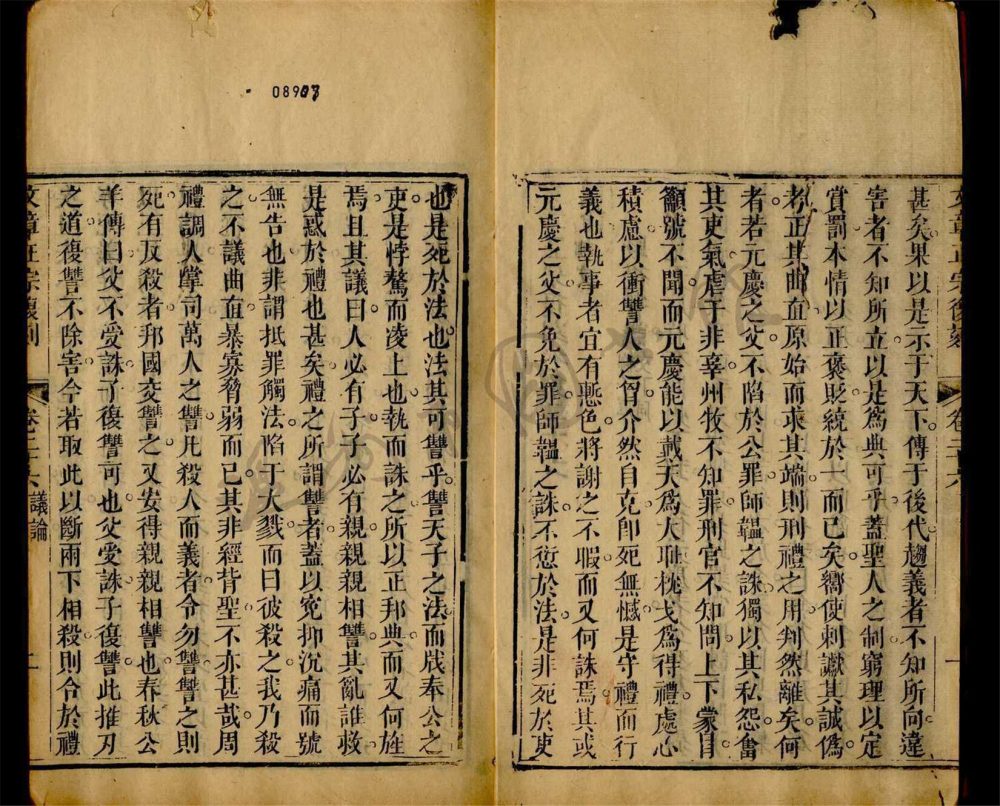 卷二十六
一
甚矣果以是示于天下傳于後代趨義者不知所向違
害者不知所立以是爲典可乎蓋聖人之制窮理以定
賞罰本情以正褒貶統於一而已矣嚮使刺讞其誠僞
考正其曲直原始而求其端則刑禮之用判然離矣何
者若元慶之父不陷於公罪師韞之誅獨以其私怨奮
其吏氣虐于非辜州牧不知罪刑官不知問上下蒙冒
籲號不聞而元慶能以戴天爲大恥枕戈爲得禮處心
積慮以衝讐人之胷介然自克卽死無憾是守禮而行
義也執事者宜有慙色將謝之不暇而又何誅焉其或
元慶之父不免於罪師韞之誅不愆於法是非死於吏
08903
也是死於法也法其可讐乎讐天子之法而戕奉公之
吏是悖驁而凌上也執而誅之所以正邦典而又何旌
焉且其議曰人必有子子必有親親親相讐其亂誰救
是惑於禮也甚矣禮之所謂讐者蓋以冤抑沉痛而號
無告也非謂抵罪觸法陷于大戮而曰彼殺之我乃殺
之不議曲直暴寡脅弱而已其非經背聖不亦甚哉周
禮調人掌司萬人之讐凡殺人而義者令勿讐讐之則
死有反殺者邦國交讐之又安得親親相讐也春秋公
羊傳曰父不受誅子復讐可也父受誅子復讐此推刃
之道復讐不除害今若取此以斷兩下相殺則合於禮
文章正宗復刻
卷二十六
議論
二